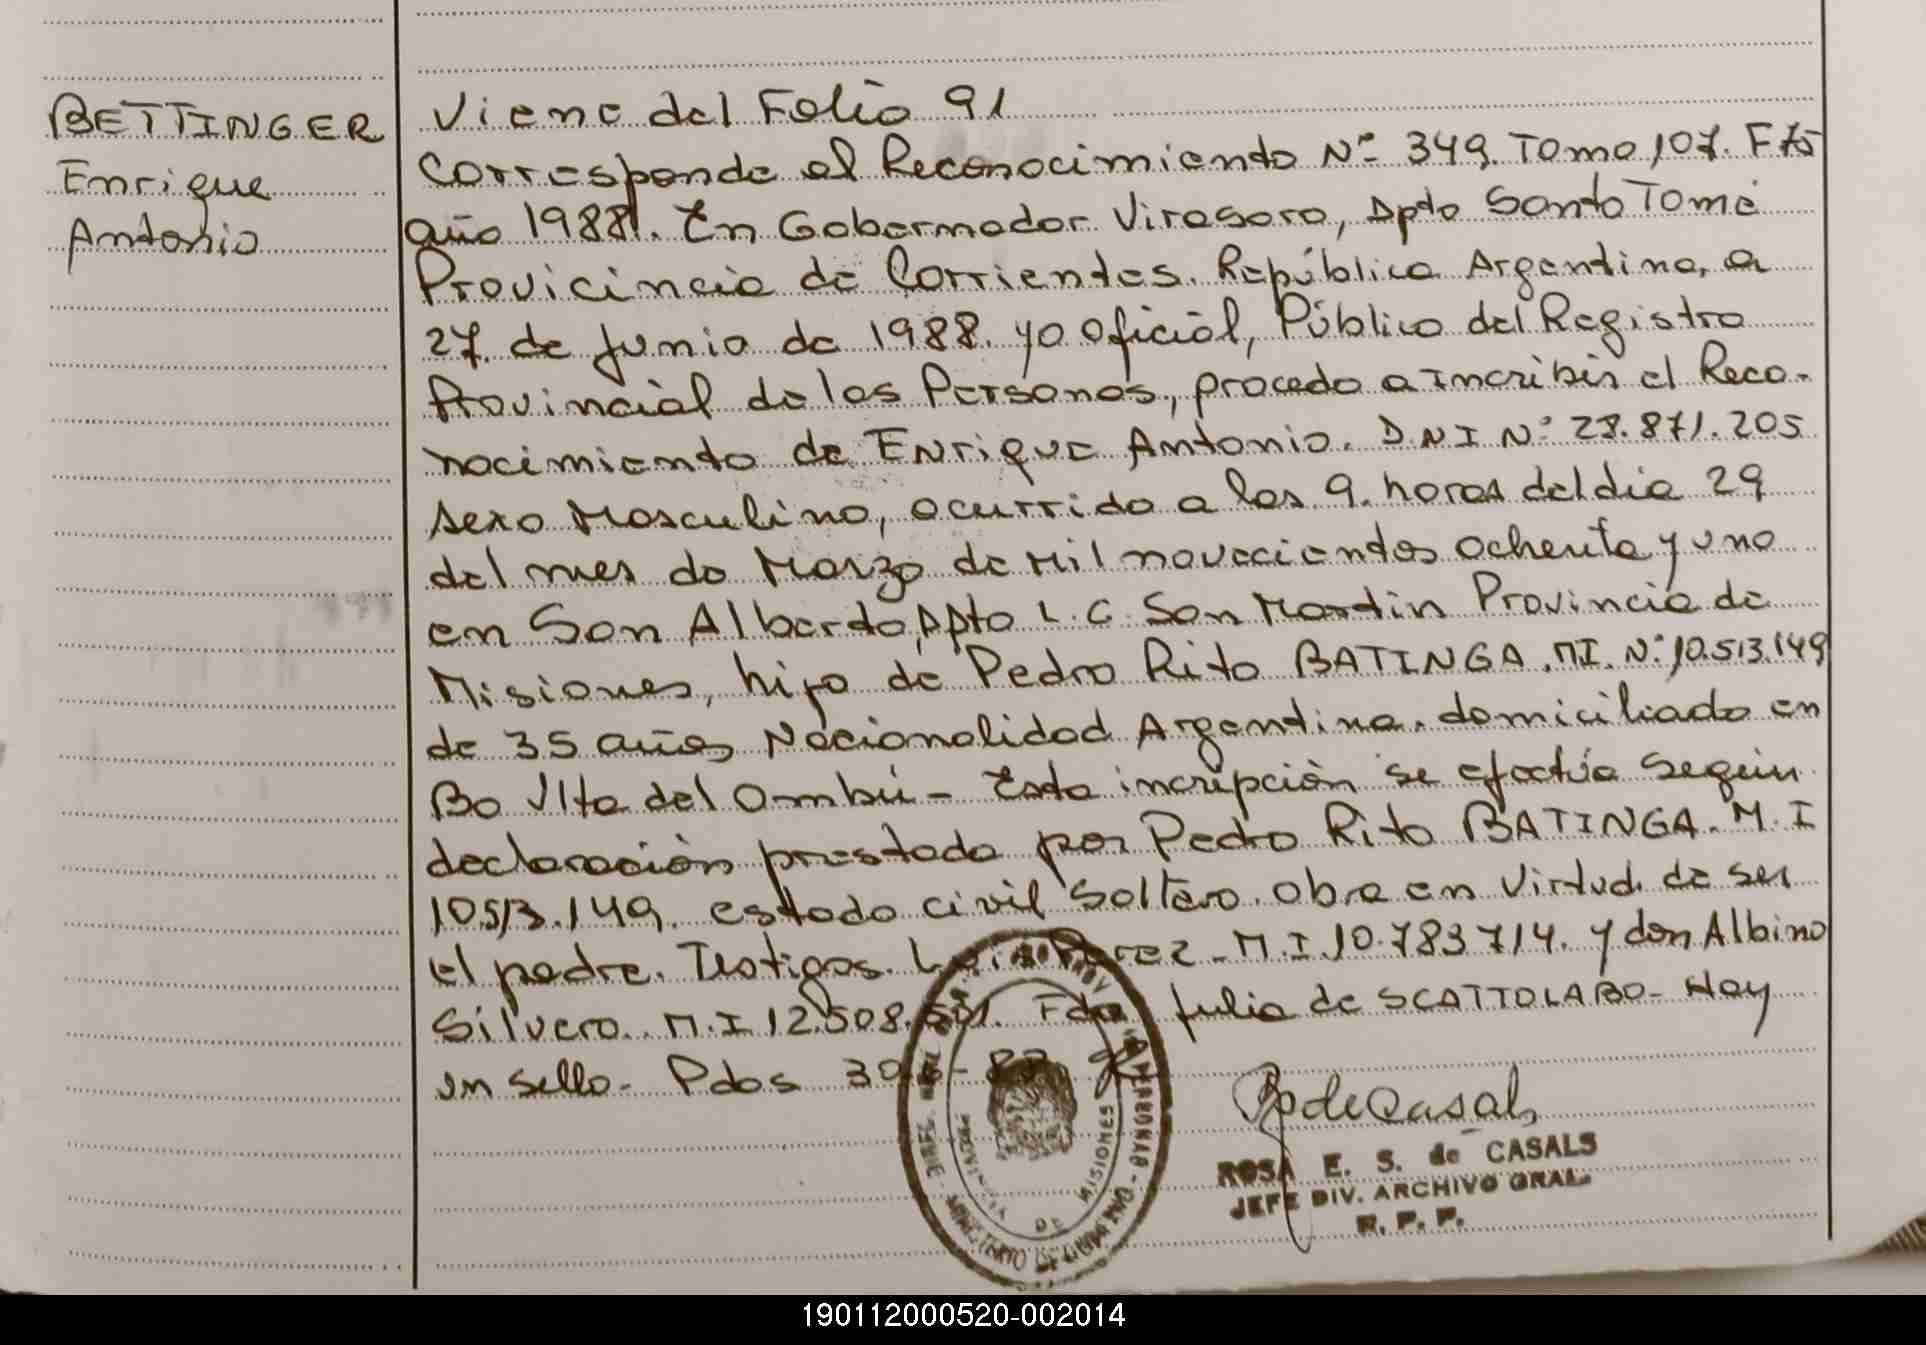 BETTINGER
Enrique
Antonio
Viene del Folio 91
Corresponde al Reconocimiento N° 349. Tomo 107. F 75
año 1988. En Gobernador Virasoro, Dpto Santo Tomé
Provicincia de Corrientes. República Argentina, a
27. de Junio de 1988. yo Oficial, Público del Registro
Provincial de las Personas, procedo a Inscribir el Reco-
nocimiento de Enrique Antonio. D.N.I N° 28.871.205
sexo Masculino, ocurrido a las 9. horas del día 29
del mes de Marzo de Mil noveccientos ochenta y uno
en San Alberto, Dpto L. G. San Martín Provincia de
Misiones, hijo de Pedro Rito BATINGA. M.I. N° 10.513.149
de 35 años, Nacionalidad Argentina. domiciliado en
Bo Vlta del Ombú - Esta incripción se efectúa según
declaración prestada por Pedro Rito BATINGA. M. I
10.513.149. estado civil Soltero. Obra en Virtud. de ser
el padre. Testigos. Perez - M.I. 10.783714. y don Albino
Silvero. M.I 12.508. Fdo Julia de SCATTOLABO - Hay
un sello - Pdas 30
ROSA E. S. de CASALS
JEFE DIV. ARCHIVO GRAL.
R. P. P.
PERSONAS - MINISTERIO DE GOBIERNO
PROVINCIA DE MISIONES
190112000520-002014